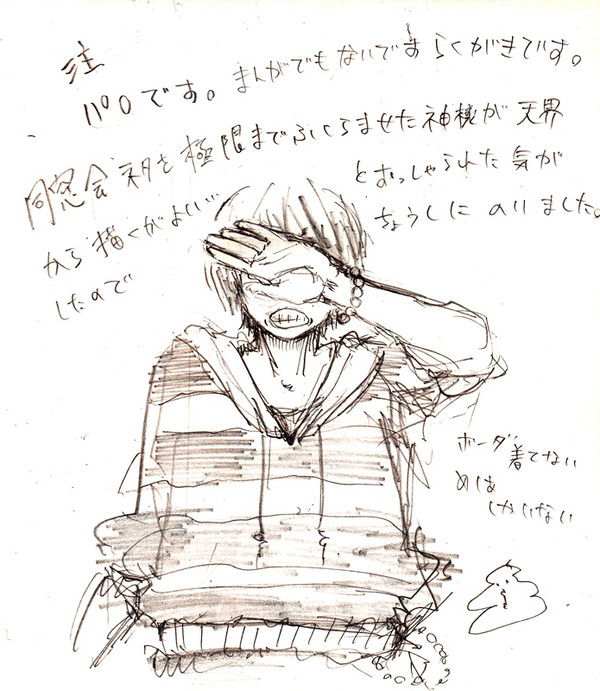 注
パロです。まんがでもないですらくがきです。
同窓会ネタを極限までふくらませた神様が天界
から描くがよい…とおっしゃられた気が
したのでちょうしにのりました。
ボーダー着てない
めは
しかいない